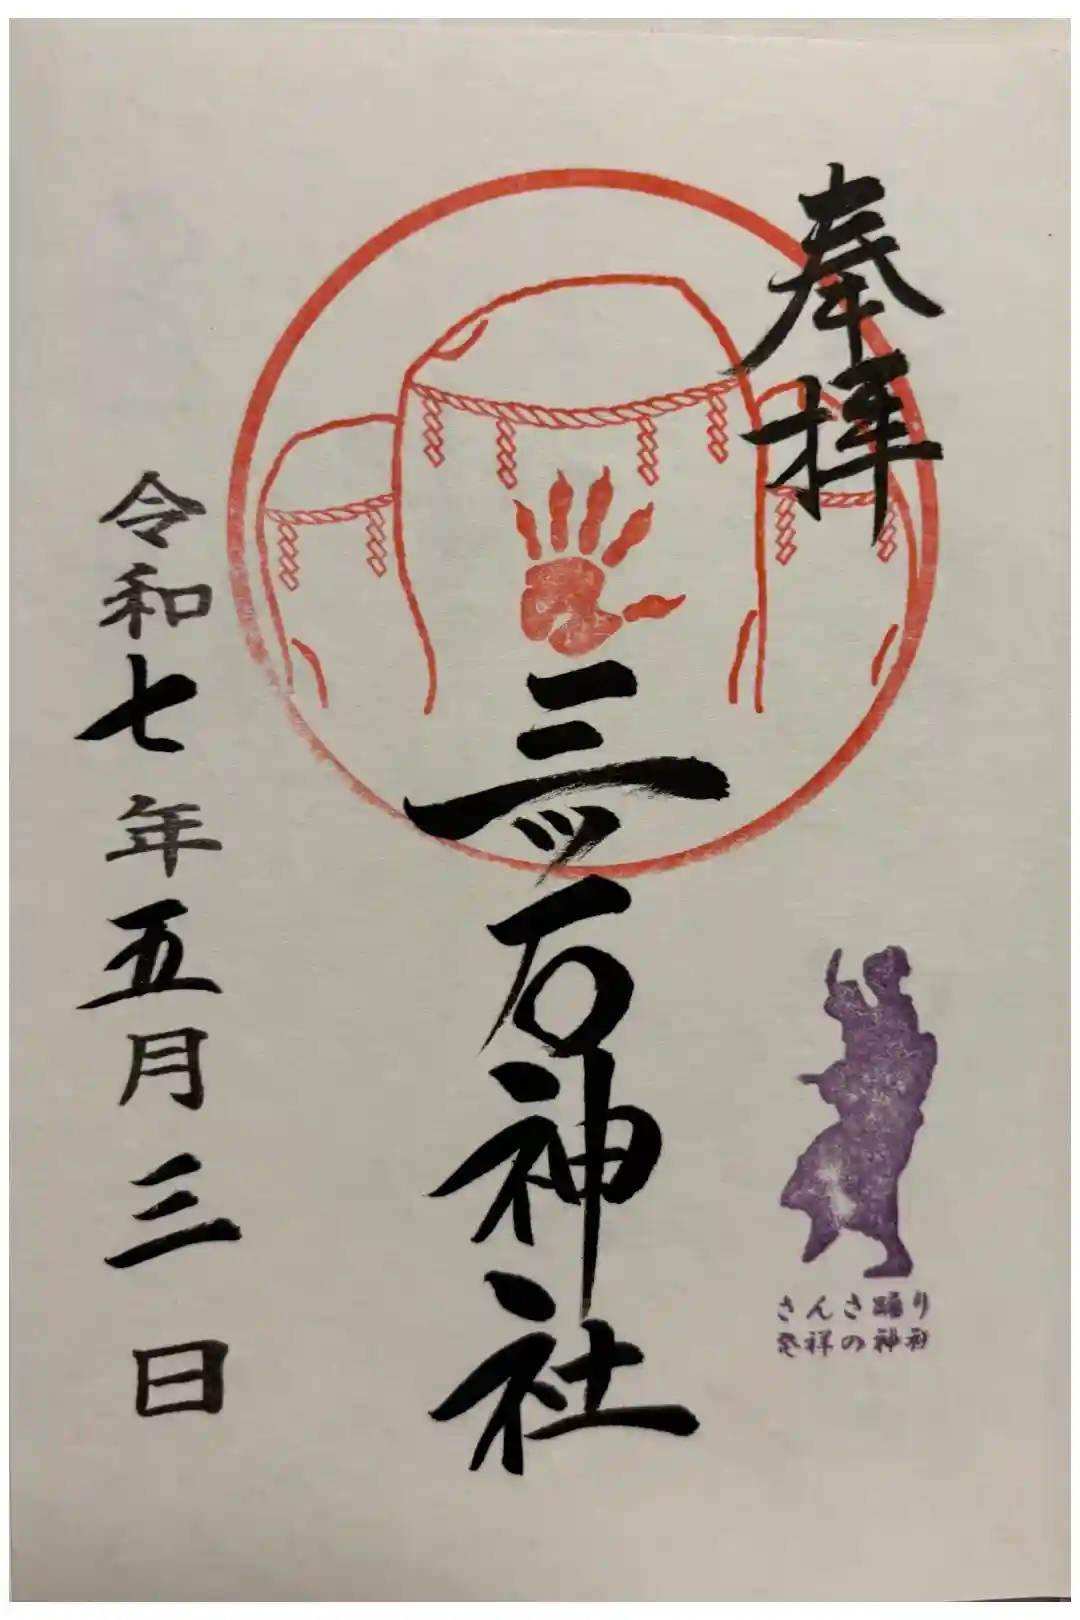 奉拝
三ツ石神社
さんさ踊り
発祥の神社
令和七年五月三日